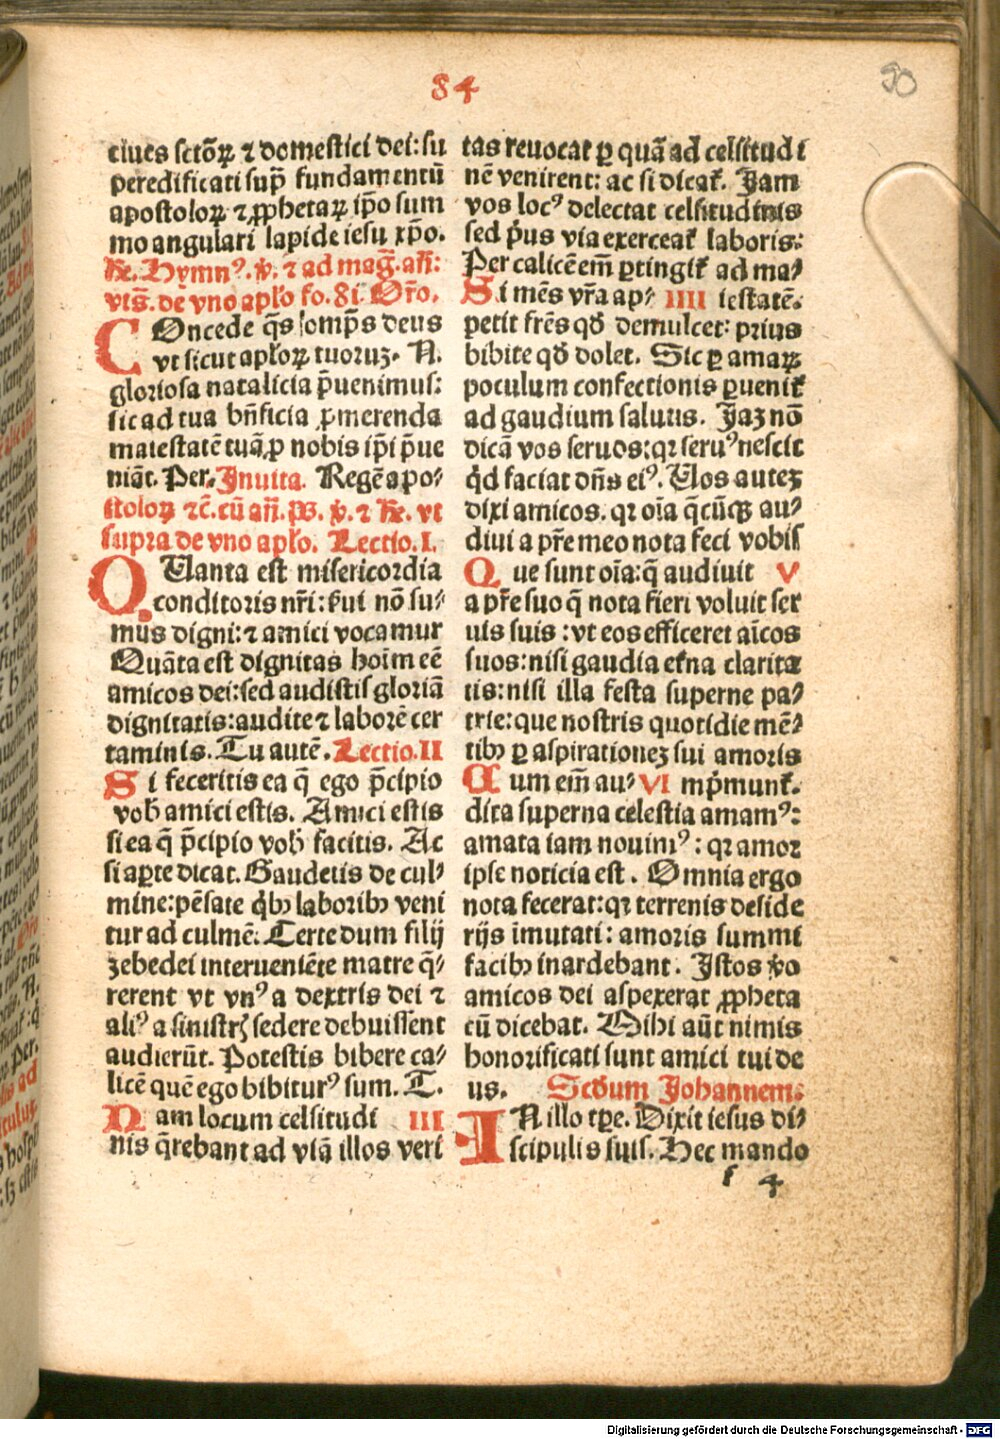 84
90
ciues sctõꝝ ⁊ domestici dei: su
peredificati sup̃ fundamentũ
apostoloꝝ ⁊ ꝓphetaꝝ ip̃o sum
mo angulari lapide iesu xp̃o.
℟. Hymn⁹. ℣. ⁊ ad mag̃. añ:
vts̃. de vno apl̃o fo. 81. Or̃o.
COncede q̃s om̃ps deus
vt sicut apl̃oꝝ tuoruꝫ. N.
gloriosa natalicia p̃uenimus:
sic ad tua bñficia ꝓmerenda
maiestatẽ tuã, ꝓ nobis ip̃i p̃ue
niãt. Per. Inuita. Regẽ apo⸗
stoloꝝ ⁊c̃. cũ añ. ps. ℣. ⁊ ℟. vt
supra de vno apl̃o. Lectio. I.
QUanta est misericordia
conditoris nr̃i: s̃ui nõ su⸗
mus digni: ⁊ amici vocamur
Quãta est dignitas hoĩm eẽ
amicos dei: sed audistis gloriã
dignitatis: audite ⁊ laborẽ cer
taminis. Tu autẽ. Lectio. II
Si feceritis ea q̃ ego p̃cipio
vob̃ amici estis. Amici estis
si ea q̃ p̃cipio vob̃ facitis. Ac
si aꝑte dicat. Gaudetis de cul⸗
mine: pẽsate q̃bꝫ laboribꝫ veni
tur ad culmẽ. Certe dum filij
zebedei interueniẽte matre q̃⸗
rerent vt vn⁹ a dextris dei ⁊
ali⁹ a sinistrꝭ sedere debuissent
audierũt. Potestis bibere ca⸗
licẽ quẽ ego bibitur⁹ sum. T.
Nam locum celsitudi III
nis q̃rebant ad viã illos veri
tas reuocat ꝑ quã ad celsitudi
nẽ venirent: ac si dicat̃. Iam
vos loc⁹ delectat celsitudinis
sed p̃us via exerceat̃ laboris:
Per calicẽ em̃ ꝑtingit̃ ad ma⸗
Si mẽs vr̃a ap⸗ IIII iestatẽ.
petit frẽs qđ demulcet: prius
bibite qđ dolet. Sic ꝑ amaꝝ
poculum confectionis ꝑuenit̃
ad gaudium salutis. Iaꝫ nõ
dicã vos seruos: qꝛ seru⁹ nescit
q̃d faciat dñs ei⁹. Uos auteꝫ
dixi amicos. qꝛ oĩa q̃cũqꝫ au⸗
diui a pr̃e meo nota feci vobis
Que sunt oĩa: q̃ audiuit V
a pr̃e suo q̃ nota fieri voluit ser
uis suis: vt eos efficeret aĩcos
suos: nisi gaudia et̃na clarita
tis: nisi illa festa superne pa⸗
trie: que nostris quotidie mẽ⸗
tibꝫ ꝑ aspirationeꝫ sui amoris
Cum em̃ au⸗ VI mp̃munt̃.
dita superna celestia amam⁹:
amata iam nouim⁹: qꝛ amor
ipse noticia est. Omnia ergo
nota fecerat: qꝛ terrenis deside
rijs ĩmutati: amoris summi
facibꝫ inardebant. Istos ṽo
amicos dei aspexerat ꝓpheta
cũ dicebat. Mihi aũt nimis
honorificati sunt amici tui de
us. Scđum Johannem:
IN illo tꝑe. Dixit iesus di⸗
scipulis suis. Hec mando
f 4
Digitalisierung gefördert durch die Deutsche Forschungsgemeinschaft - DFG